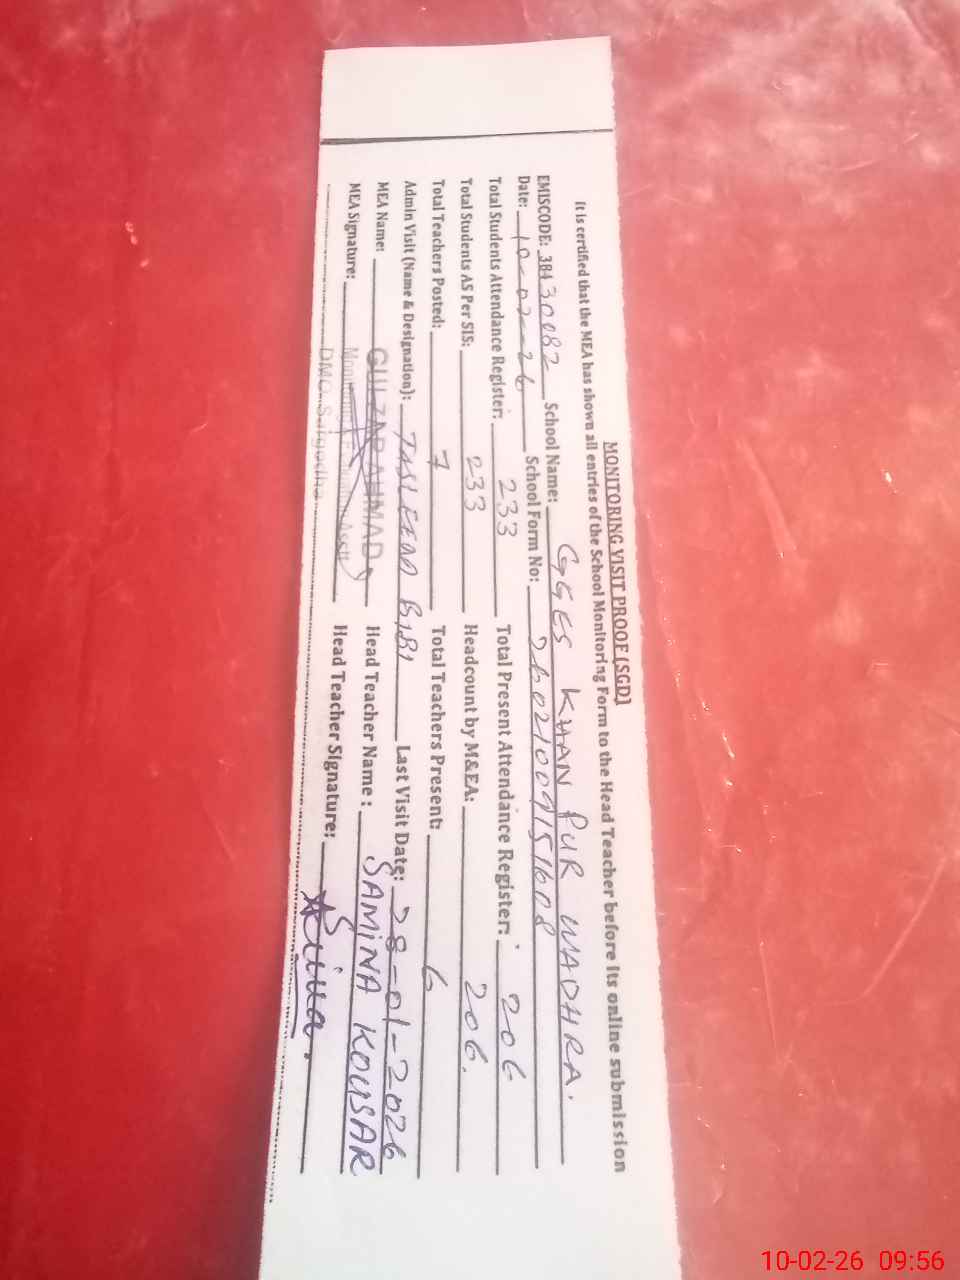 MONITORING VISIT PROOF (SGD)
It is certified that the MEA has shown all entries of the School Monitoring Form to the Head Teacher before its online submission
EMISCODE: 38430082 School Name: GGES KHAN PUR WADHRA.
Date: 10-02-26 School Form No:
Total Students Attendance Register: 233 Total Present Attendance Register: 206
Total Students AS Per SIS: 233 Headcount by M&EA: 206.
Total Teachers Posted: 7 Total Teachers Present: 6
Admin Visit (Name & Designation): TASLEEM BIBI Last Visit Date: 28-01-2026
MEA Name: GULZAR AHMAD Head Teacher Name : SAMINA KOUSAR
MEA Signature: Head Teacher Signature:
DMO Sargodha
10-02-26 09:56